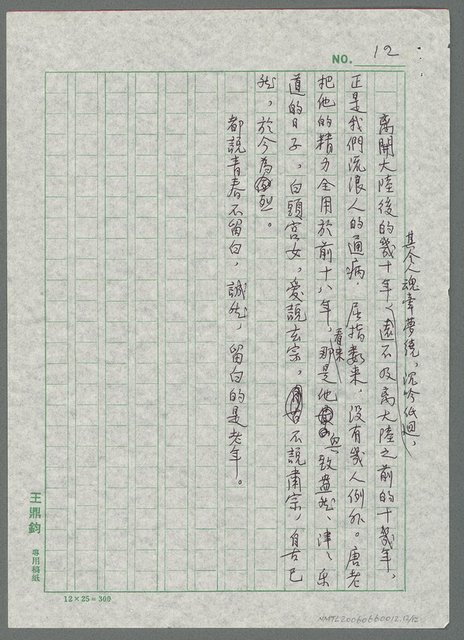 NO. 12
其令人魂牽夢繞,沉吟低迴,
離開大陸後的幾十年,遠不及離大陸之前的十幾年,
正是我們流浪人的通病,屈指數來,沒有幾人例外。唐老
把他的精力全用於前十八年,看來那是他興致盎然、津津樂
道的日子。白頭宮女,愛說玄宗,不說肅宗,自古已
然,於今為烈。
都說青春不留白,誠然,留白的是老年。
王鼎鈞
專用稿紙
12×25=300
NMTL20060660012.12/12